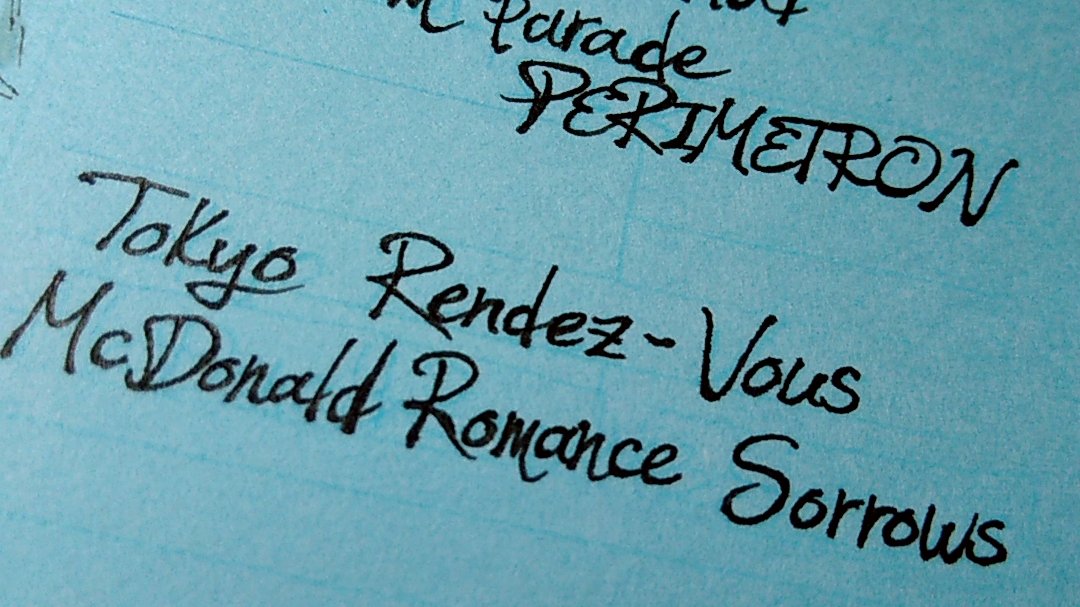 Parade
PERIMETRON
Tokyo Rendez-Vous
McDonald Romance Sorrows